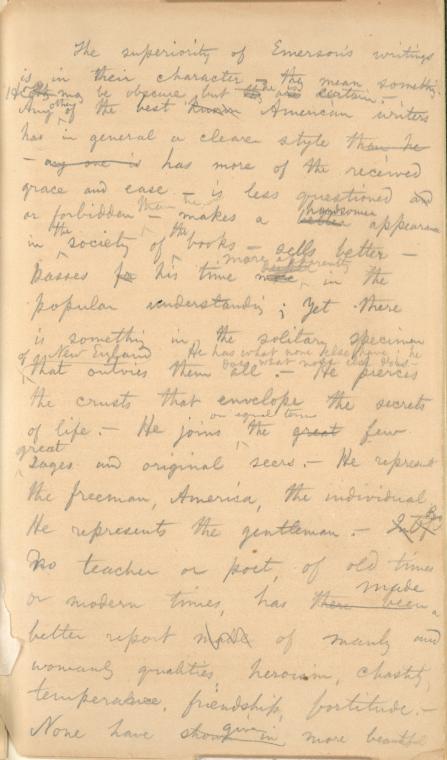 The superiority of Emerson's writings
is in their character — they mean something.
He may be obscure, but he is certain.
Any other of the best American writers
has in general a clearer style than he
— any one is has more of the received
grace and ease — is less questioned and
or forbidden than he — makes a handsomer appearance
in the society of the books — sells better —
passes his time more apparently in the
popular understanding; yet there
is something in the solitary specimen
of New England He has what none else have; he
that outvies them all. — He pierces
the crusts that envelope the secrets
of life. — He joins on equal terms the great few
great sages and original seers. — He represents
the freeman, America, the individual
He represents the gentleman. —
No teacher or poet, of old times
or modern times, has made there been a
better report made of manly and
womanly qualities, heroism, chastity,
temperance, friendship, fortitude. —
None have given more beautiful